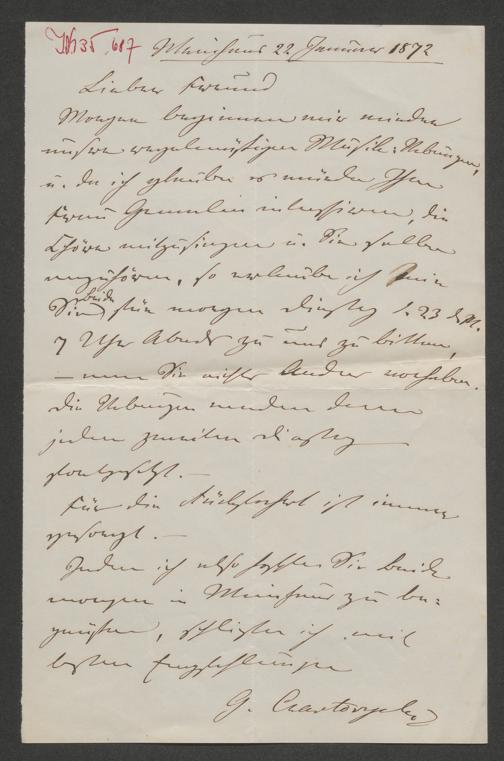 IN 35.687
Weinhaus 22 Januar 1872
Lieber Freund
Morgen beginnen wir wieder
unsere regelmäßigen Musik-Uebungen,
u. da ich glaube es würde Ihre
Frau Gemalin interessiren, die
Chöre mitzusingen u. Sie selber
anzuhören, so erlaube ich mir
Sie beide für morgen Dinstag d. 23 d. M.
7 Uhr Abends zu uns zu bitten,
– wenn Sie nichts Anders vorhaben.
Die Uebungen werden dann
jeden zweiten Dinstag
fortgesetzt. –
Für die Rückfahrt ist immer
gesorgt. –
Indem ich also hoffe Sie beide
morgen in Weinhaus zu be-
grüßen, schließe ich mit
besten Empfehlungen
G. Czartoryski